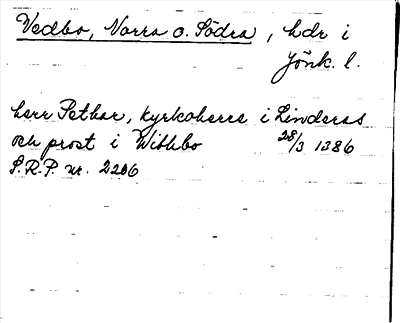 Vedbo, Norra o. Södra, hdr i
Jönk. l.
herr Pethar, kyrkoherre i Linderås
och prost i Withbo 28/3 1386
S.R.P. nr. 2206